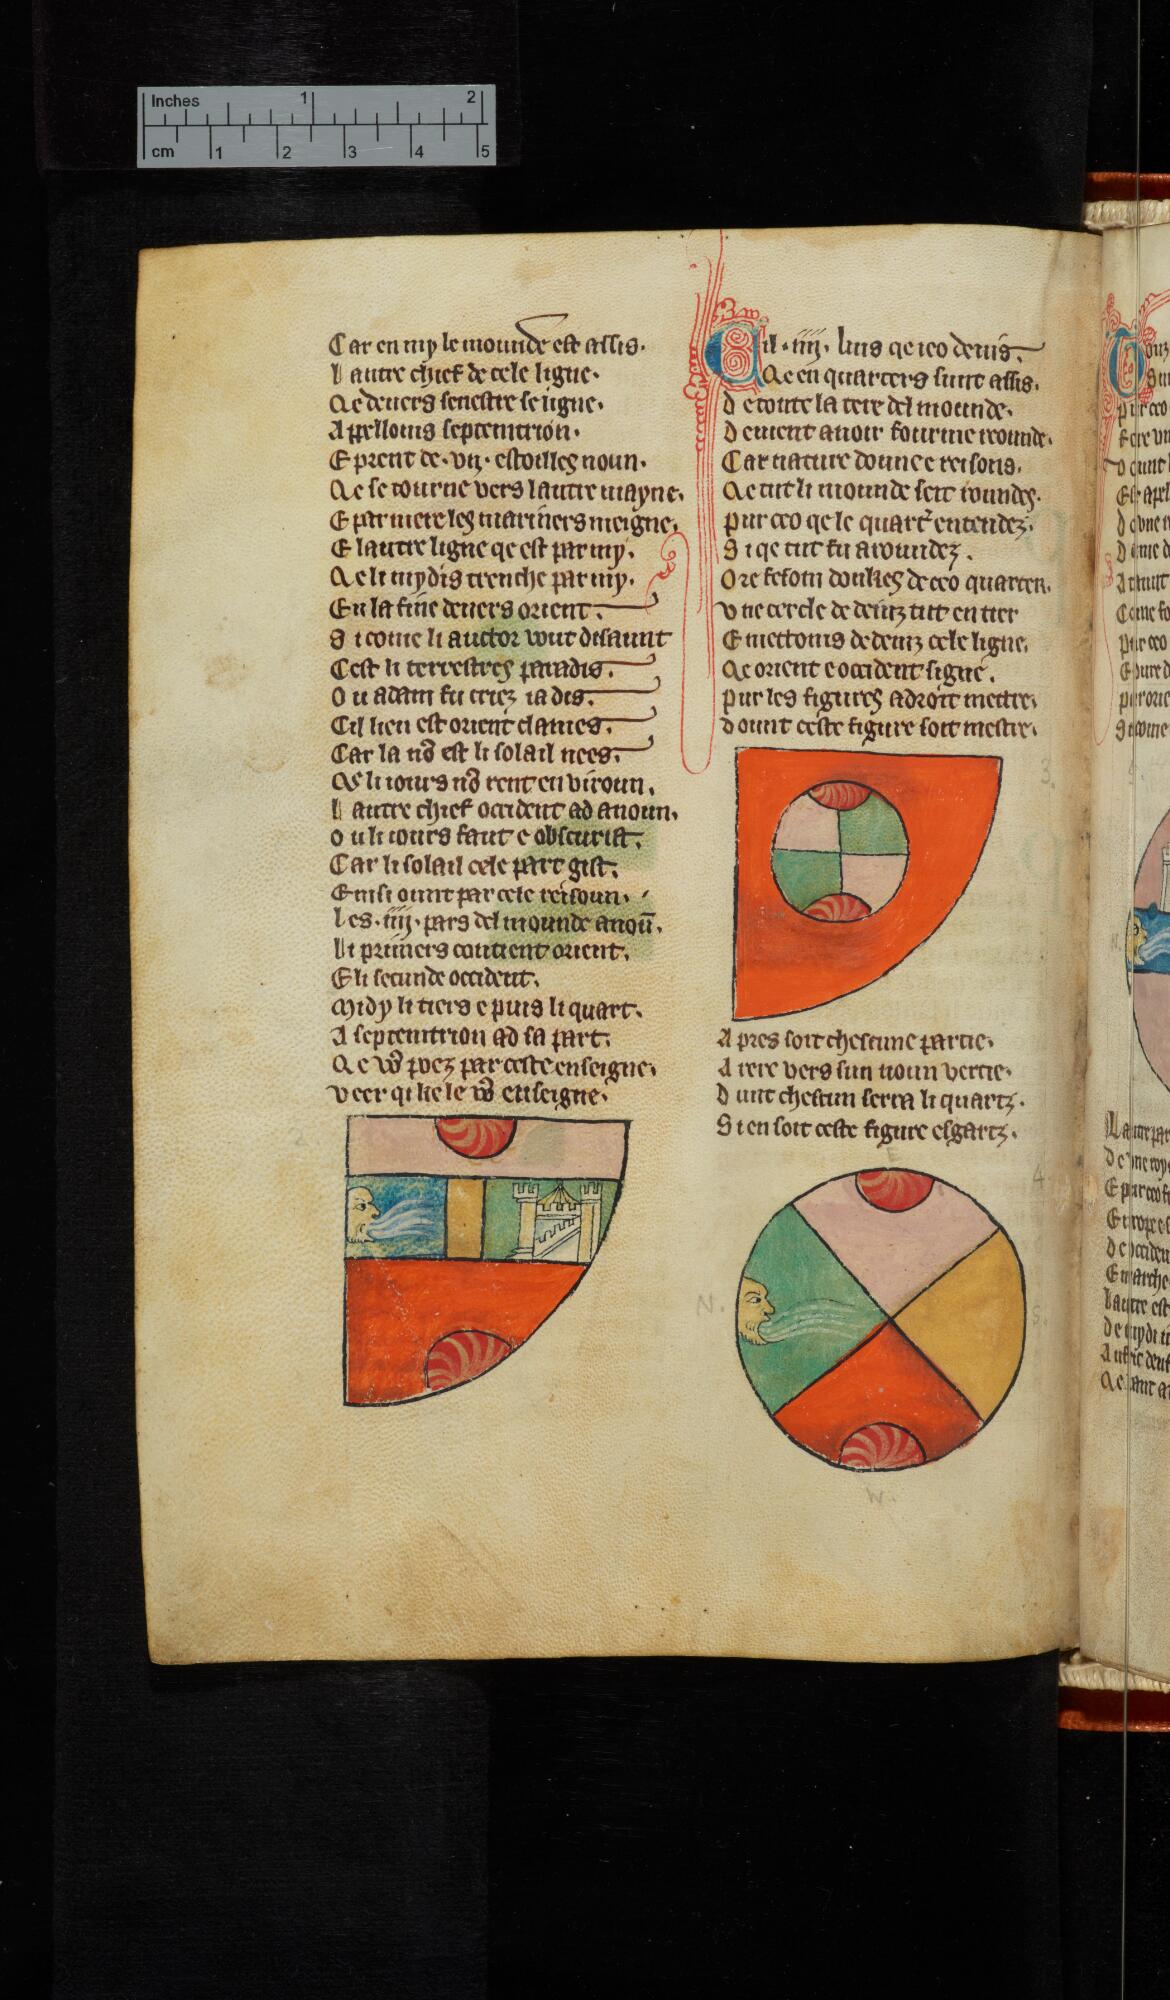 Inches 1 2
cm 1 2 3 4 5
Car en my le mounde est assis.
L autre chief de cele ligne.
Qe devers senestre se ligne.
Apellouns septemtrion.
E prent de .vij. estoilles noun.
Qe se tourne vers lautre mayne.
E par niere les mariners meigne.
E lautre ligne qe est par my.
Qe li mydis trenche par my.
En la fine devers orient.
Si come li auctor vout disaunt
Cest li terrestres paradis.
Ou adam fu criez iadis.
Cil lieu est orient clames.
Car la nō est li solail nees.
Qe li iours nō rent en viroun.
L autre chief occident ad anoun.
Ou li iours faut e obscurist.
Car li solail cele part gist.
E nisi ount par cele reisoun.
Les .iiij. pars del mounde anoū.
Li primers contient orient.
E li secunde occident.
Midy li tiers e puis li quart.
A septemtrion ad sa part.
Qe vō poez par ceste enseigne.
Veer qi ke le vō enseigne.
Cil .iiij. lius qe ieo devis.
Qe en quarters sunt assis.
De toute la tere del mounde.
Devient avoir fourme reounde.
Car nature doune e reisons.
Qe tut li mounde seit roundes.
Pur ceo qe le quart' entendez.
Si qe tut fu aroundez.
Ore fesom doukes de ceo quarter.
Vne cercle de deinz tut entier
E mettouns dedenz cele ligne.
Qe orient e occident signe.
Pur les figures adroit mettre.
Dount ceste figure soit mestre.
Apres soit chescune partie.
Arere vers sun noun vertie.
Dunt chescun serra li quartz.
Si en soit ceste figure esgartz.
3.
4
E
N.
S.
W.